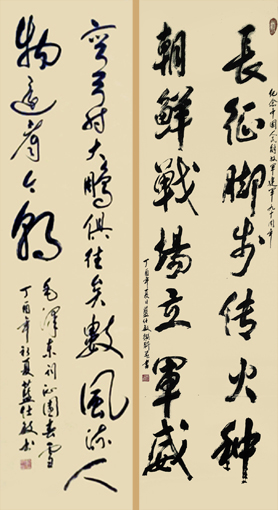 纪念中国人民解放軍建軍九十周年
長征脚步传火种
朝鮮戰場立軍威
丁酉年夏日藍仕敏撰書
弯弓射大鵬俱往矣數風流人
物还看今朝
毛澤東詞沁園春雪
丁酉年初夏藍仕敏书